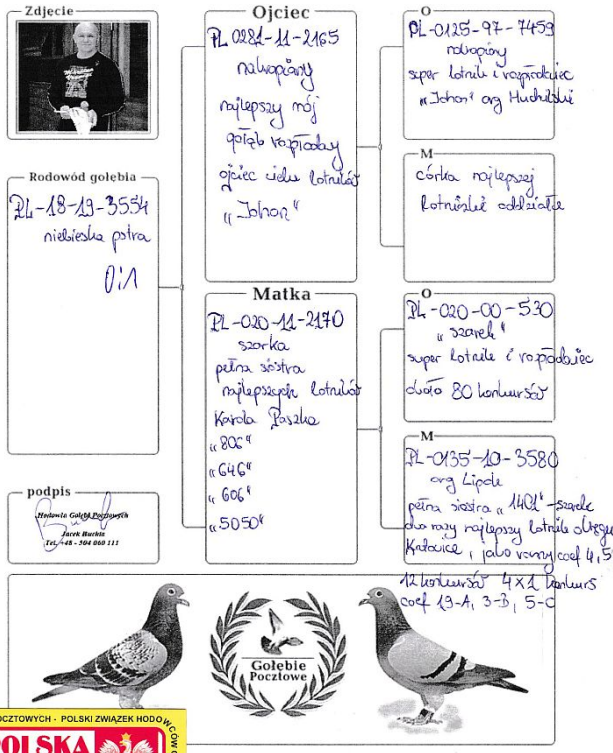 Zdjęcie
Rodowód gołębia
PL-18-19-3554
niebieska pstra
0:1
podpis
Hodowla Gołębi Pocztowych
Jacek Burkis
Tel. +48 - 504 060 111
Ojciec
PL 0281-11-2165
nakrapiany
najlepszy mój
gołąb rozpłodowy
ojciec wielu lotników
"Johon"
Matka
PL-020-11-2170
szarka
pełna siostra
najlepszych lotników
Karola Paszka
"806"
"646"
"606"
"5050"
O
PL-0125-97-7459
nakrapiany
super lotnik i rozpłodowiec
"Johon" org
M
córka najlepszej
lotniczki oddziału
O
PL-020-00-530
"szarek"
super lotnik i rozpłodowiec
około 80 konkursów
M
PL-0135-10-3580
org Lipok
pełna siostra "1401" -szarek
dwa razy najlepszy lotnik okręgu
Katowice, jako roczny coef 4,5
12 konkursów 4x1 konkurs
coef 19-A, 3-B, 5-C
Gołębie
Pocztowe
OCZTOWYCH - POLSKI ZWIĄZEK HODOWCÓW
POLSKA